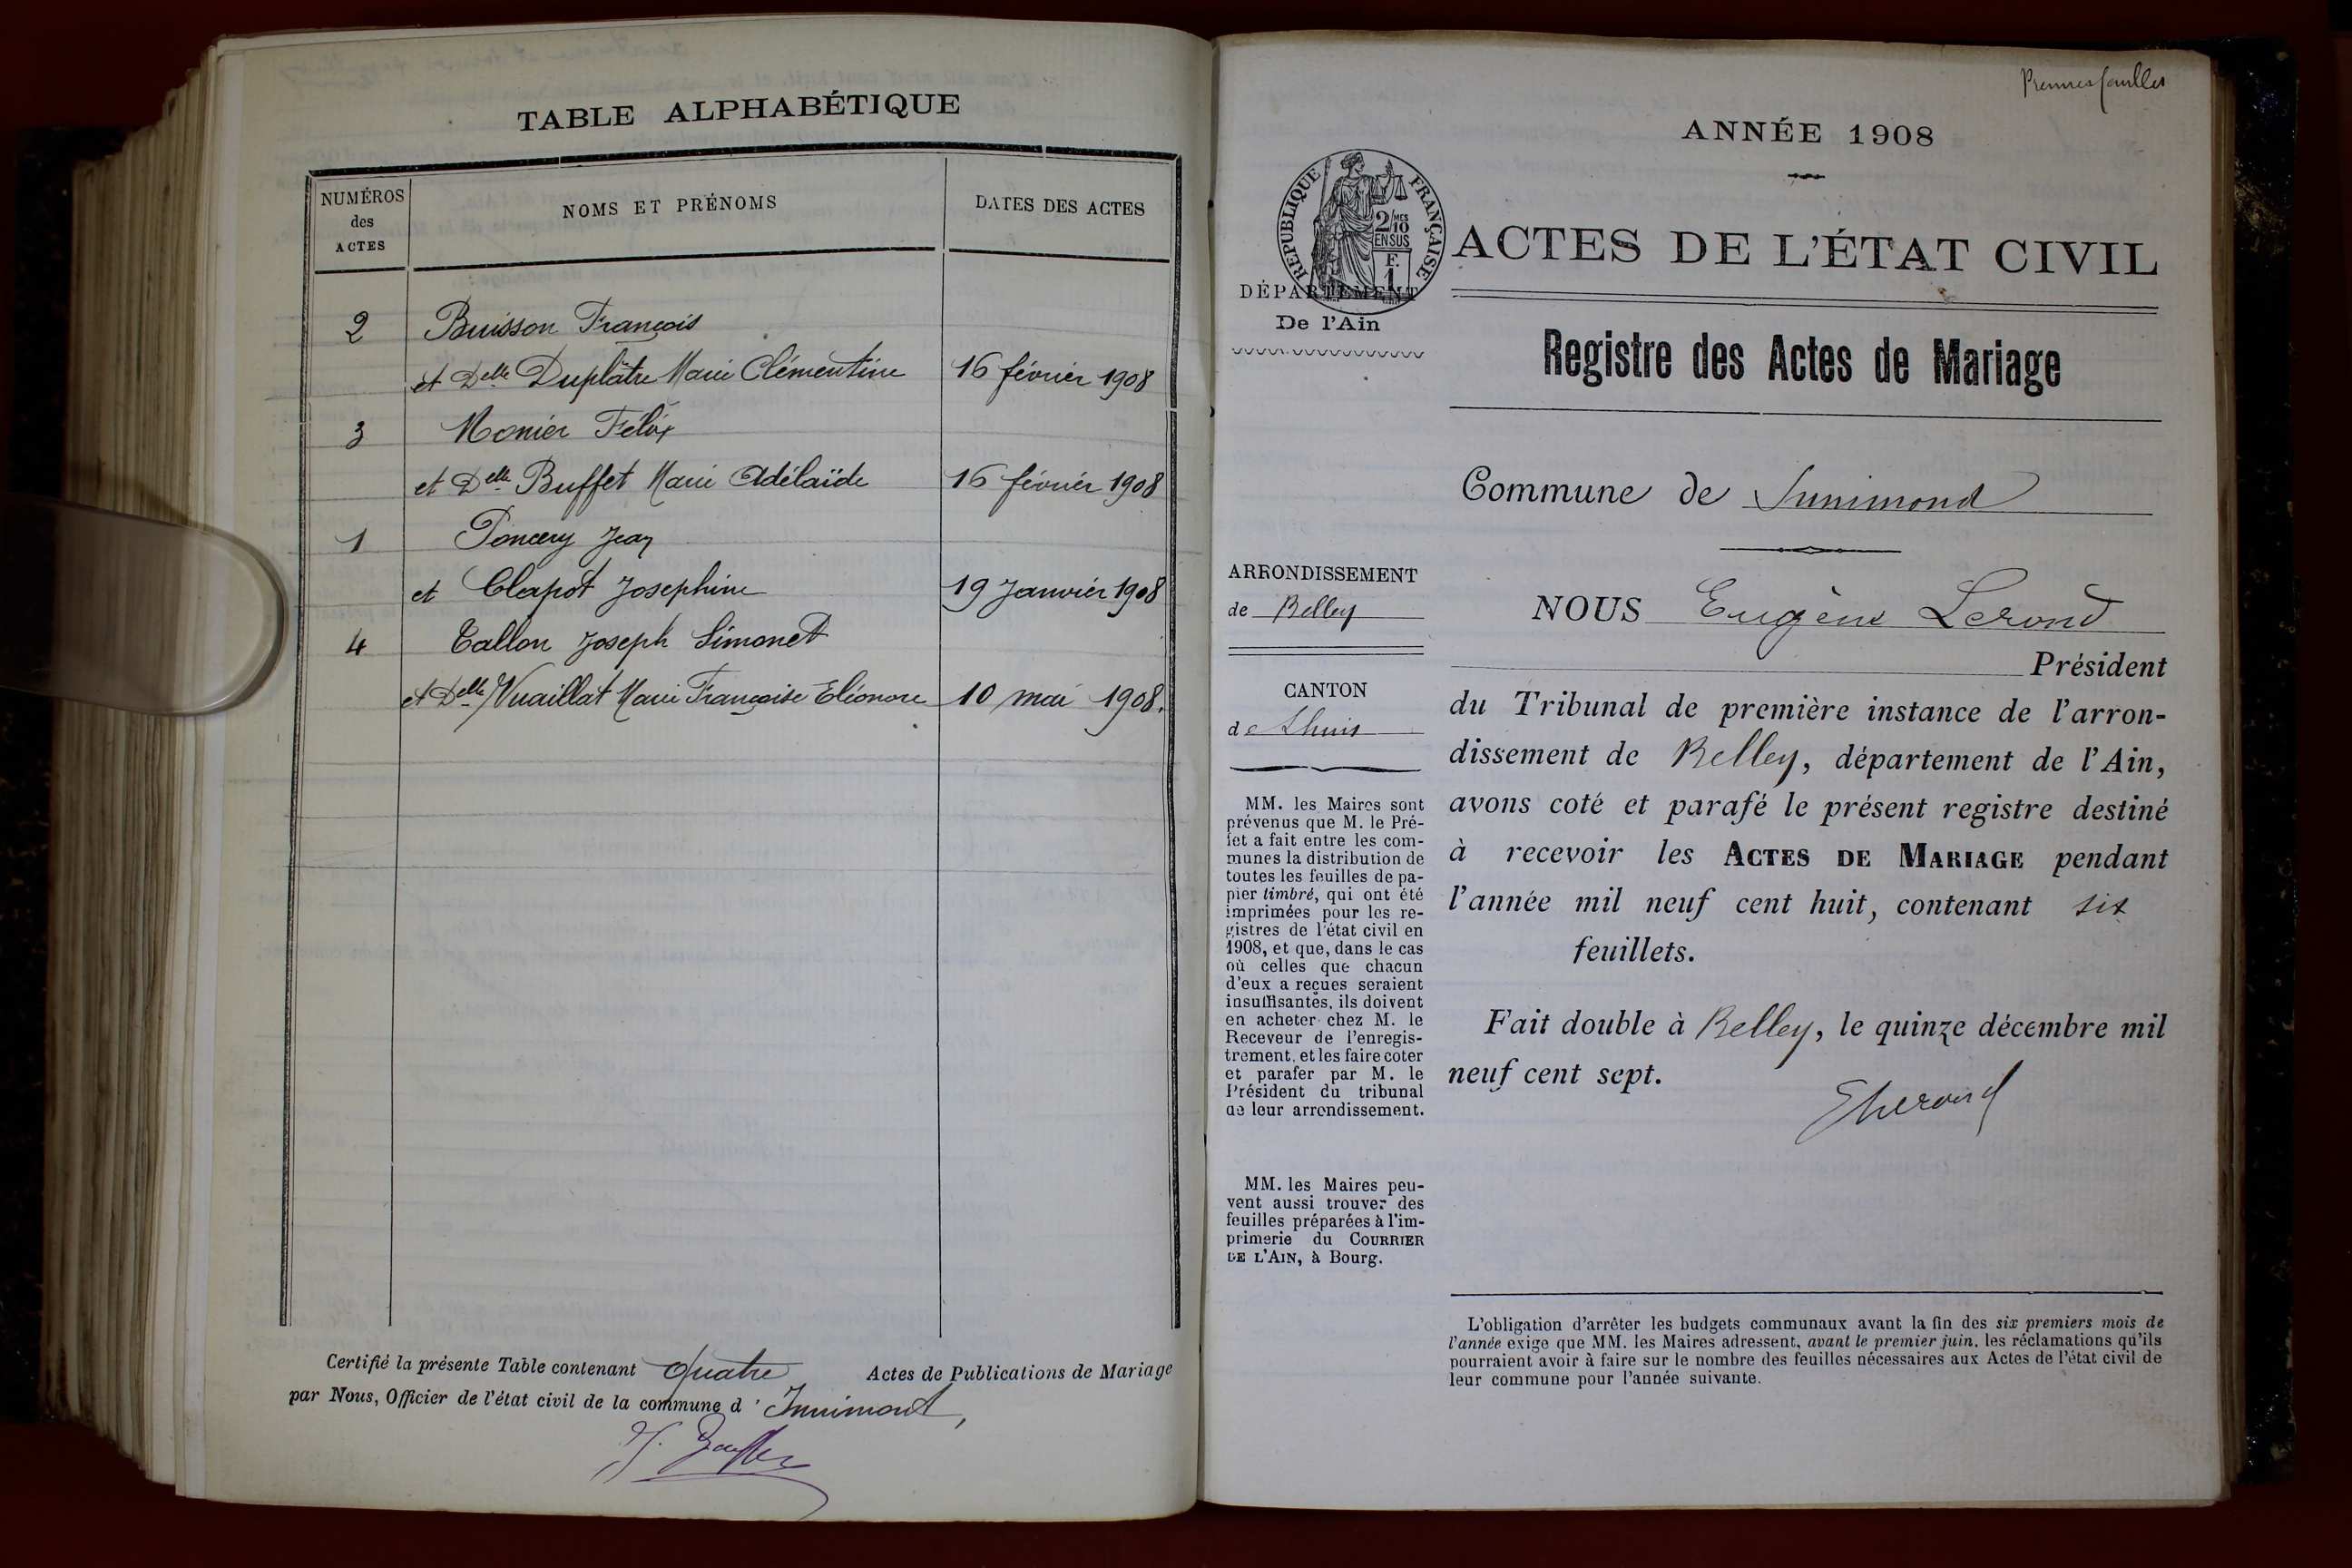 TABLE ALPHABÉTIQUE
NUMÉROS
des
ACTES
NOMS ET PRÉNOMS
DATES DES ACTES
2 Buisson François
et Delle Duplâtre Marie Clémentine 16 février 1908
3 Monier Félix
et Delle Buffet Marie Adélaïde 16 février 1908
1 Poncery Jean
et Clapot Josephine 19 Janvier 1908
4 Tallon Joseph Simonet
et Delle Vuaillat Marie Françoise Eléonore 10 mai 1908.
Certifié la présente Table contenant quatre Actes de Publications de Mariage
par Nous, Officier de l'état civil de la commune d'Innimont,
Premier feuillet
ANNÉE 1908
RÉPUBLIQUE FRANÇAISE
2/10 MES
EN SUS
F.
1
ACTES DE L'ÉTAT CIVIL
DÉPARTEMENT
De l'Ain
Registre des Actes de Mariage
Commune de Innimond
ARRONDISSEMENT
de Belley
CANTON
de Lhuis
MM. les Maires sont
prévenus que M. le Pré-
fet a fait entre les com-
munes la distribution de
toutes les feuilles de pa-
pier timbré, qui ont été
imprimées pour les re-
gistres de l'état civil en
1908, et que, dans le cas
où celles que chacun
d'eux a reçues seraient
insuffisantes, ils doivent
en acheter chez M. le
Receveur de l'enregis-
trement, et les faire coter
et parafer par M. le
Président du tribunal
de leur arrondissement.
MM. les Maires peu-
vent aussi trouver des
feuilles préparées à l'im-
primerie du COURRIER
DE L'AIN, à Bourg.
NOUS Eugène Lerond
Président
du Tribunal de première instance de l'arron-
dissement de Belley, département de l'Ain,
avons coté et parafé le présent registre destiné
à recevoir les ACTES DE MARIAGE pendant
l'année mil neuf cent huit, contenant six
feuillets.
Fait double à Belley, le quinze décembre mil
neuf cent sept.
L'obligation d'arrêter les budgets communaux avant la fin des six premiers mois de
l'année exige que MM. les Maires adressent, avant le premier juin, les réclamations qu'ils
pourraient avoir à faire sur le nombre des feuilles nécessaires aux Actes de l'état civil de
leur commune pour l'année suivante.